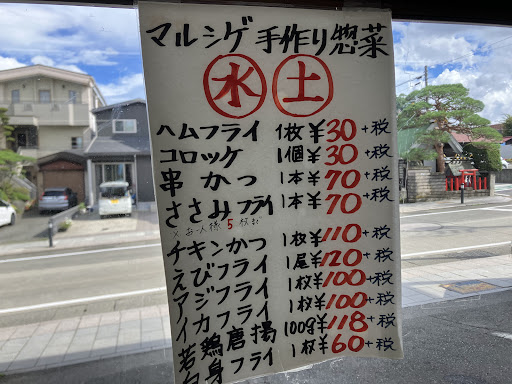 マルシゲ手作り惣菜
水 土
ハムフライ 1枚¥30+税
コロッケ 1個¥30+税
串かつ 1本¥70+税
ささみフライ 1本¥70+税
×お一人様5枚まで
チキンかつ 1枚¥110+税
えびフライ 1尾¥120+税
アジフライ 1枚¥100+税
イカフライ 1枚¥100+税
若鶏唐揚 100g¥118+税
白身フライ 1枚¥60+税